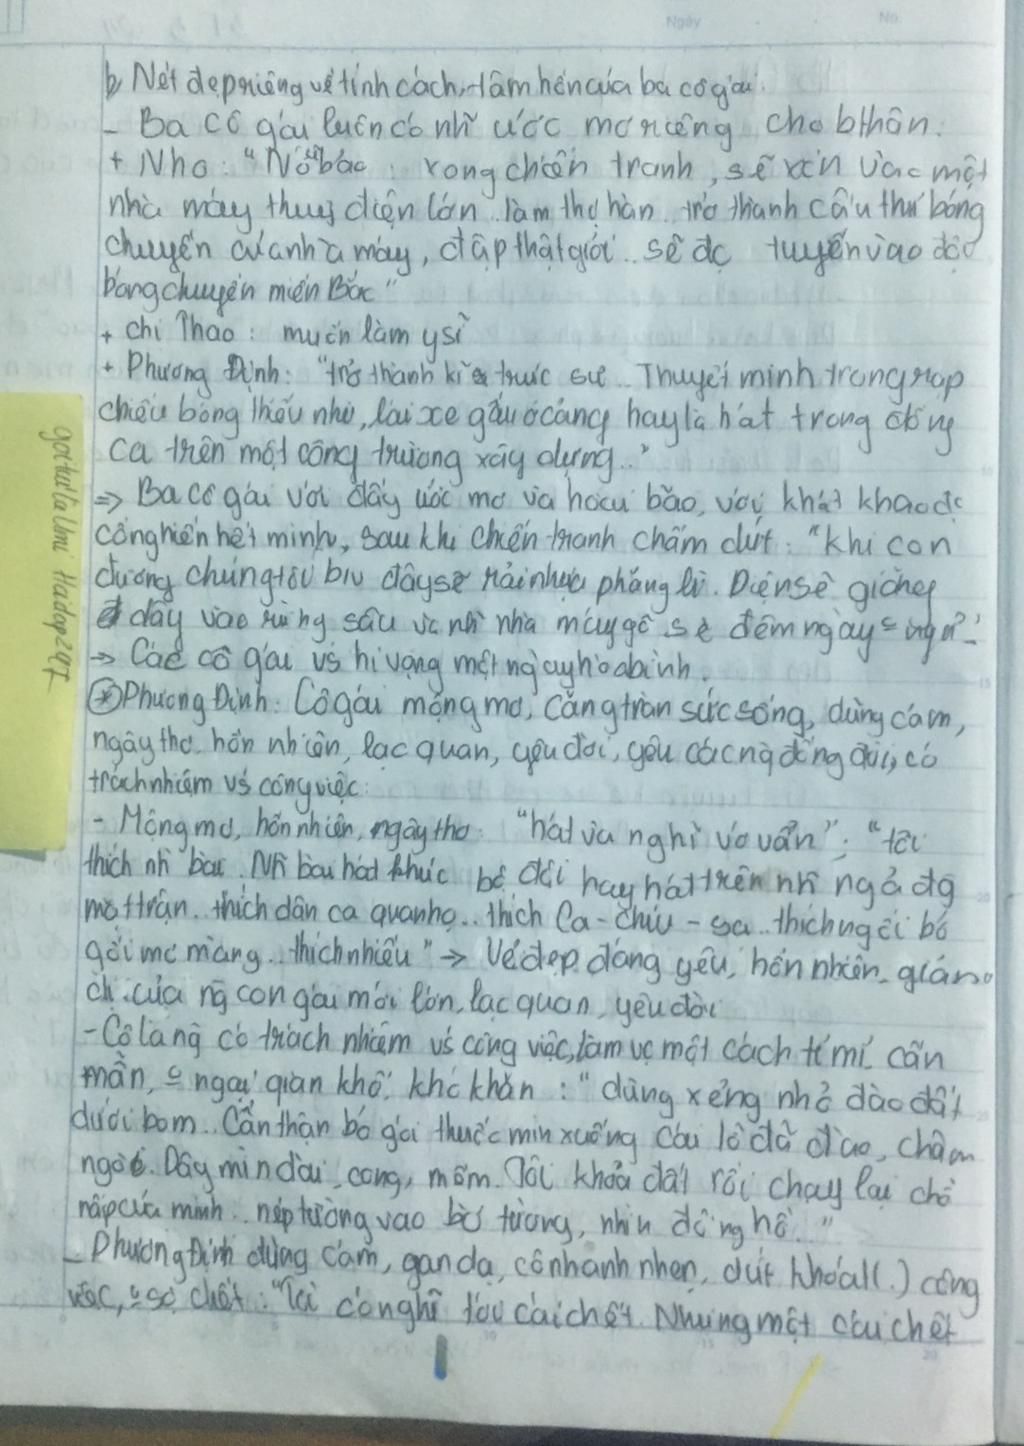 Ngày No.
b, Nét đẹp riêng về tính cách, tâm hồn của ba cô gái:
- Ba cô gái luôn có nh~ ước mơ riêng cho bthân.
+ Nho: "Nó bảo: xong chiến tranh, sẽ xin vào một
nhà máy thuỷ điện lớn.. làm thợ hàn.. trở thành cầu thủ bóng
chuyền của nhà máy, đập thật giỏi.. sẽ đc tuyển vào đội
bóng chuyền miền Bắc"
+ chị Thao: muốn làm y sĩ
+ Phương Định: "trở thành kiến trúc sư.. Thuyết minh trong rạp
chiếu bóng thiếu nhi, lái xe ở cảng hay là hát trong đồng
ca trên một công trường xây dựng.."
=> Ba cô gái với đầy ước mơ và hoài bão, với khát khao đc
cống hiến hết mình, sau khi chiến tranh chấm dứt: "khi con
đường chúng tôi bây giờ đây sẽ rải nhựa phẳng lì. Điện sẽ giăng
đầy vào rừng sâu và nh~ nhà máy gỗ sẽ đêm ngày ngủ"
-> Các cô gái vs hi vọng một ngày hoà bình.
* Phương Định: Cô gái mộng mơ, căng tràn sức sống, dũng cảm,
ngây thơ, hồn nhiên, lạc quan, yêu đời, yêu các ng đồng đội, có
trách nhiệm vs công việc:
- Mộng mơ, hồn nhiên, ngây thơ: "hát và nghĩ vớ vẩn"; "tôi
thích nh~ bài. Nh~ bài hát khúc bộ đội hay hát trên nh~ ngả đg
mặt trận.. thích dân ca quan họ.. thích Ca-chiu-sa.. thích ngồi bó
gối mơ màng.. thích nhiều" -> Vẻ đẹp đáng yêu, hồn nhiên, giản
dị của ng con gái mới lớn, lạc quan, yêu đời
- Cô là ng có trách nhiệm vs công việc, làm vc một cách tỉ mỉ, cẩn
mẩn, ngại gian khổ, khó khăn: "dùng xẻng nhỏ đào đất
dưới bom.. Cẩn thận bỏ gói thuốc mìn xuống cái lỗ đã đào, châm
ngòi. Dây mìn dài, cong, mềm. Tôi khoả đất rồi chạy lại chỗ
nấp của mình.. nép tường vào bờ tường, nhìn đồng hồ.."
- Phương Định dũng cảm, gan dạ, cô nhanh nhẹn, dứt khoát (.) công
việc, sợ chết: "Tôi có nghĩ tới cái chết. Nhưng một cái chết
gọi tui là Umi Hadop297